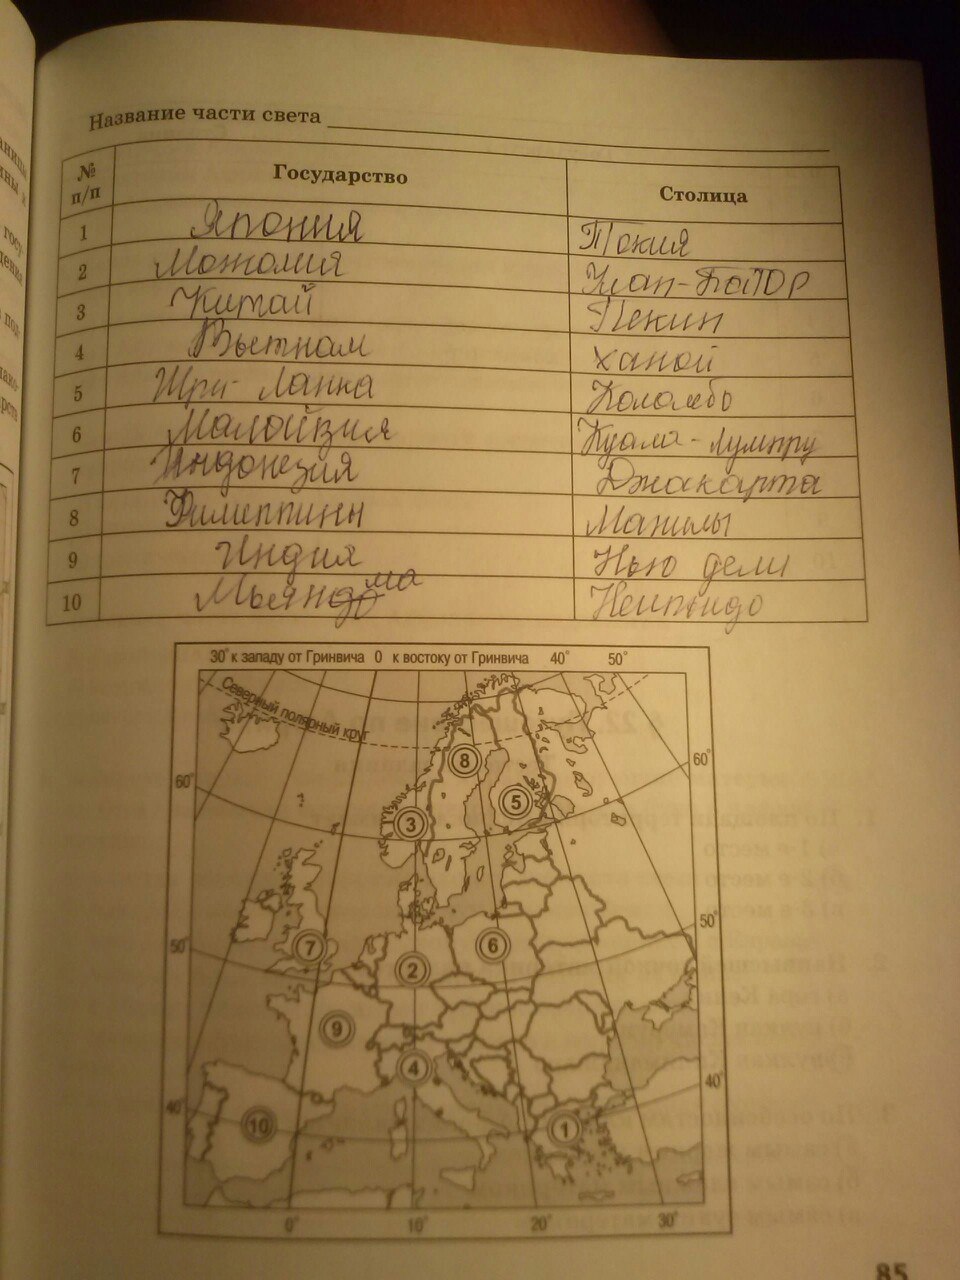 Название части света
№ п/п Государство Столица
1 Япония Токия
2 Можолия Улан-Батор
3 Китай Пекин
4 Вьетнам Ханой
5 Шри-Ланка Коломбо
6 Малайзия Куала-Лумпру
7 Индонезия Джакарта
8 Филиппины Манилы
9 Индия Нью дели
10 Мьяндома Неипьидо
30° к западу от Гринвича 0 к востоку от Гринвича 40° 50°
Северный полярный круг
8
60° 60°
5
3
50°
7 6
50° 2
9
4 40°
40° 10 1
0° 10° 20° 30°
85